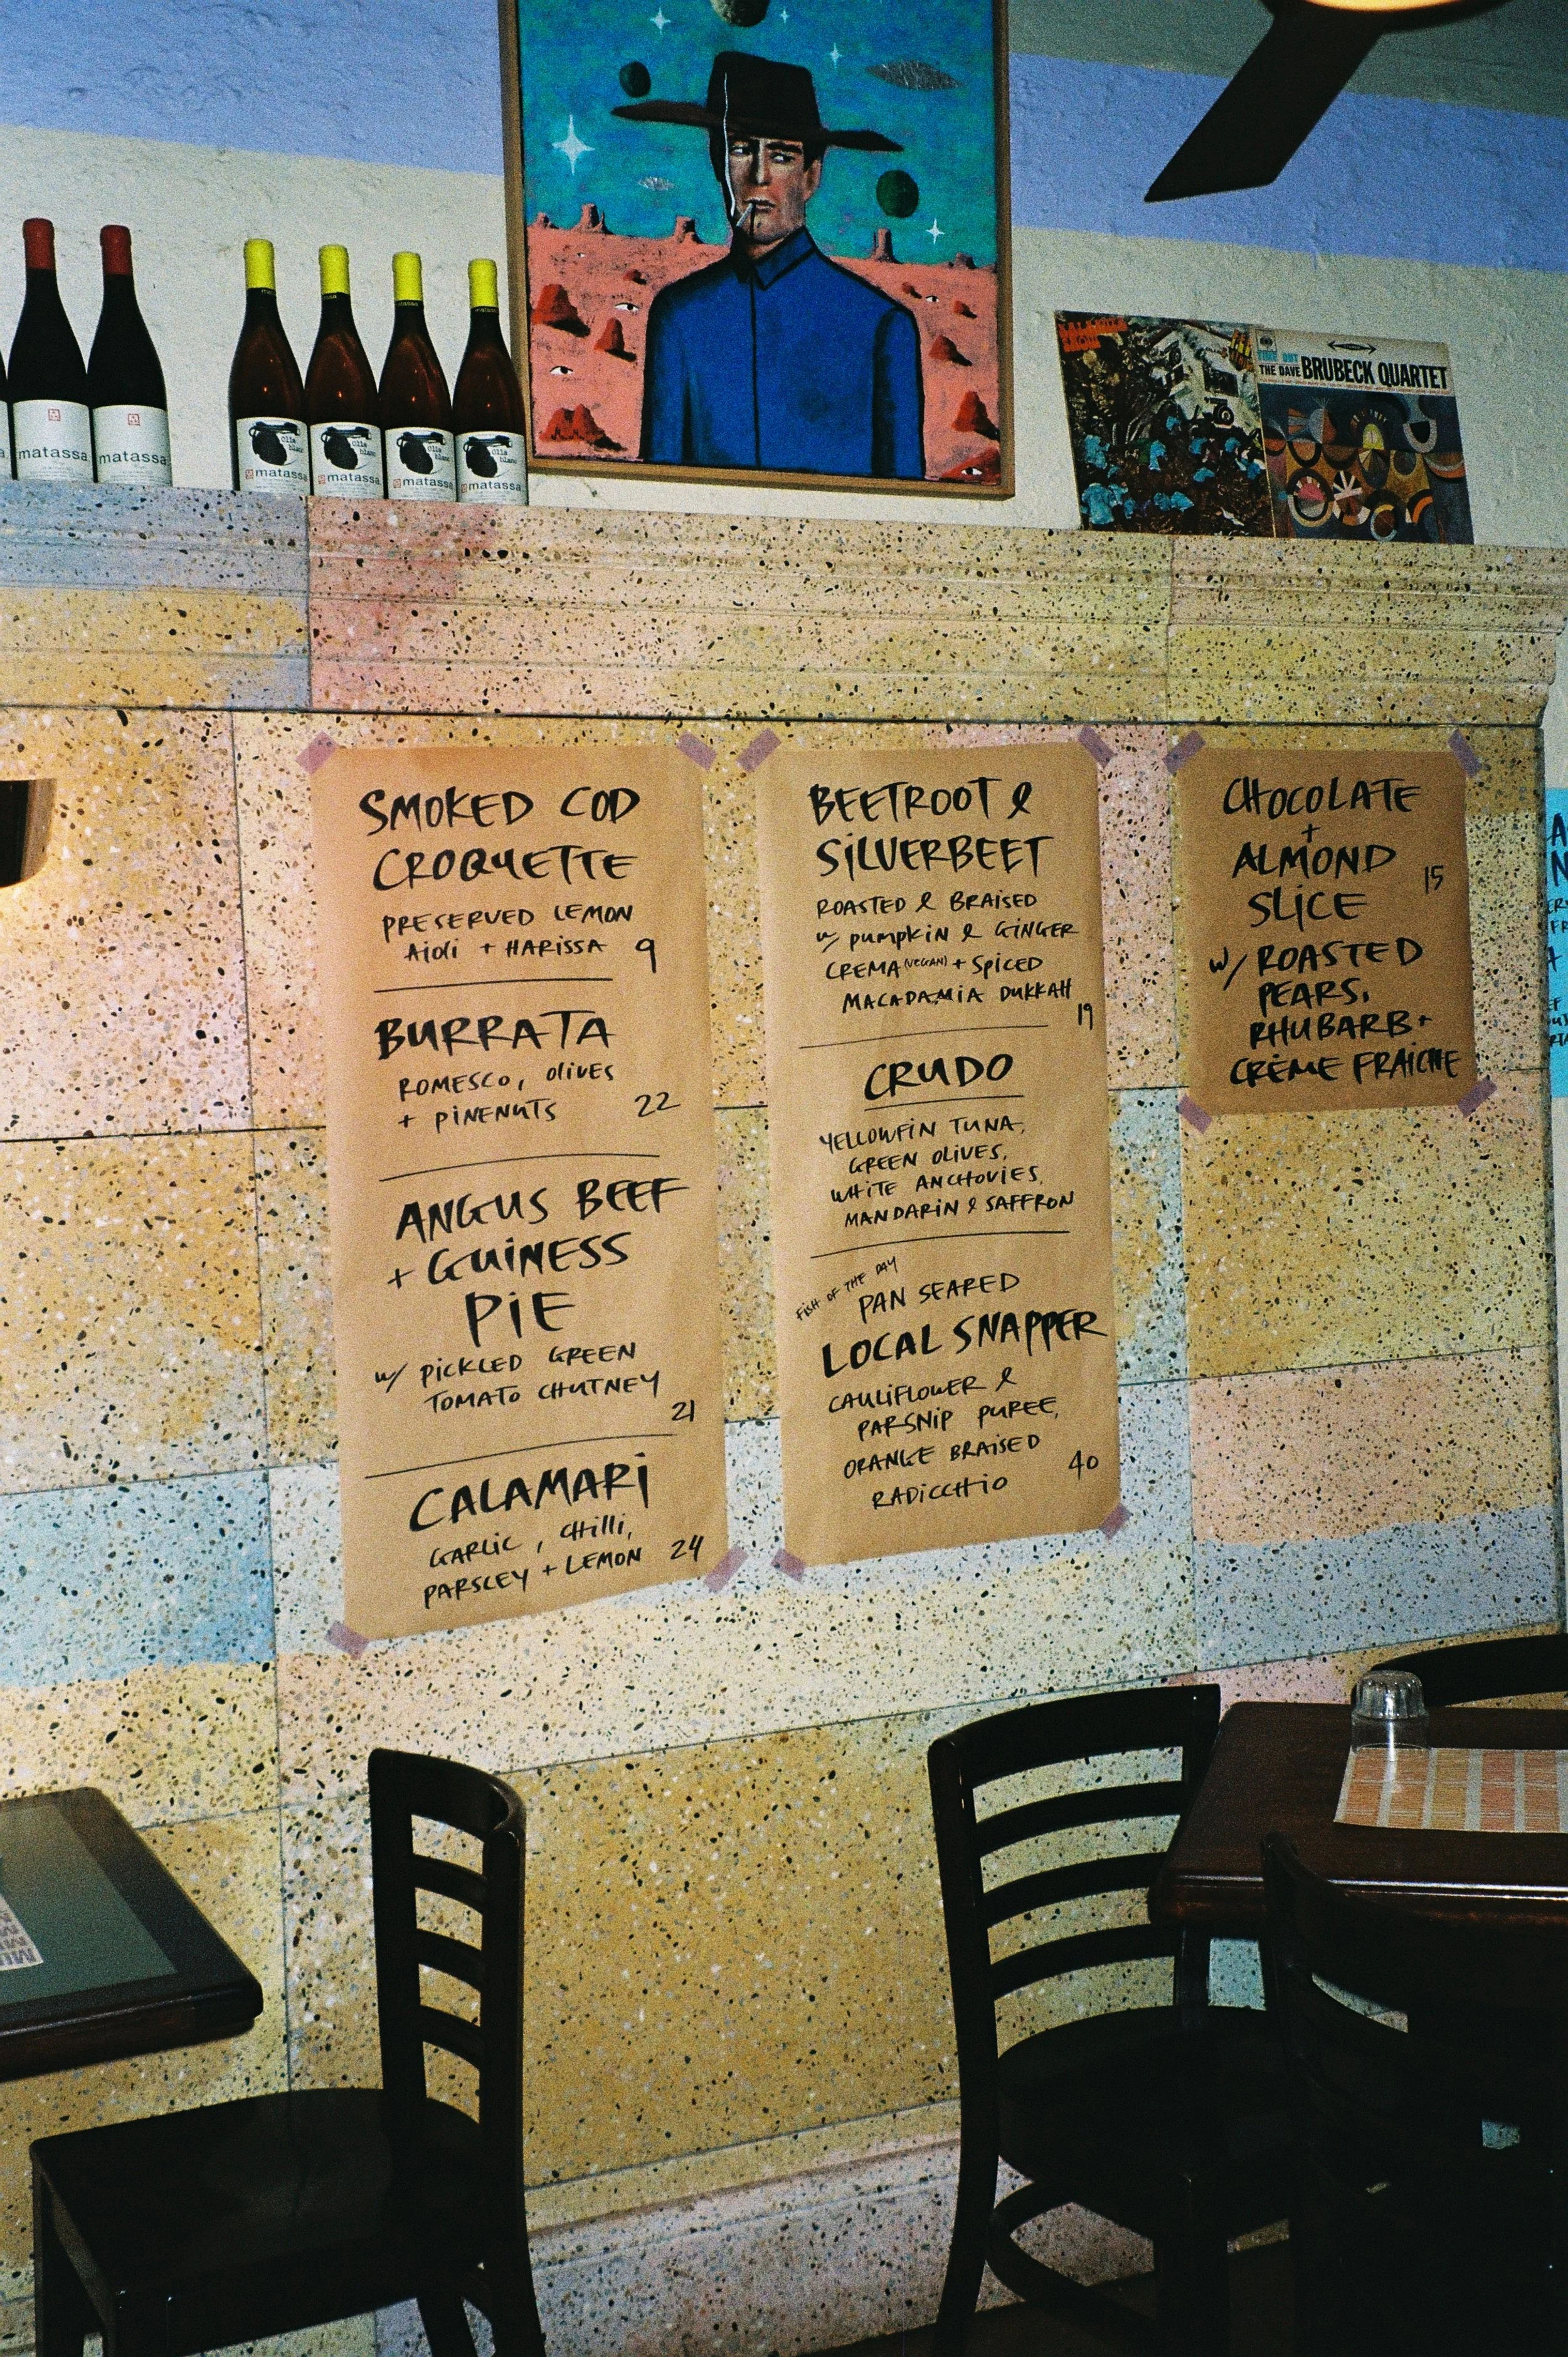 matassa
matassa
Olla
blanc
matassa
Olla
blanc
matassa
Olla
blanc
matassa
Olla
blanc
matassa
TIME OUT
THE DAVE BRUBECK QUARTET
SMOKED COD
CROQUETTE
PRESERVED LEMON
AiOli + HARiSSA 9
BURRATA
ROMESCO, OliVES
+ PiNENUTS 22
ANGUS BEEF
+ GUiNESS
PiE
w/ PiCKLED GREEN
TOMATO CHUTNEY
21
CALAMARi
GARLiC, CHilli,
PARSLEY + LEMON 24
BEETROOT &
SiLVERBEET
ROASTED & BRAISED
w/ PUMPKiN & GiNGER
CREMA (VEGAN) + SPiCED
MACADAMiA DUKKAH
19
CRUDO
YELLOWFiN TUNA,
GREEN OLiVES,
WHiTE ANCHOViES,
MANDARiN & SAFFRON
FiSH OF THE DAY
PAN SEARED
LOCAL SNAPPER
CAULiFLOWER &
PARSNiP PUREE,
ORANGE BRAiSED
RADiCCHiO 40
CHOCOLATE
+
ALMOND
SLiCE 15
w/ ROASTED
PEARS,
RHUBARB +
CRÈME FRAîCHE